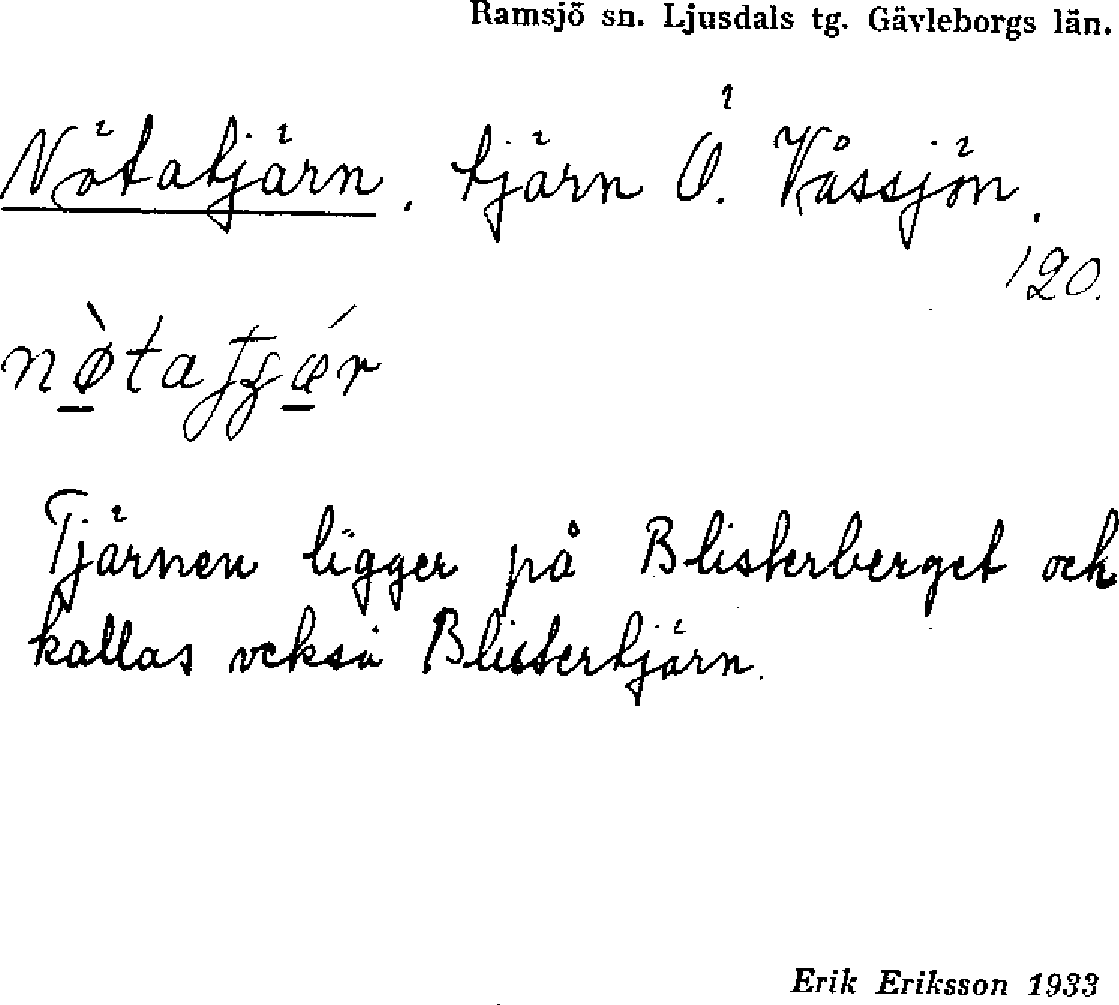 Ramsjö sn. Ljusdals tg. Gävleborgs län.
Nötatjärn. tjärn Ö. Våssjön.
120.
Tjärnen ligger på Blisterberget och
kallas också Blistertjärn.
Erik Eriksson 1933